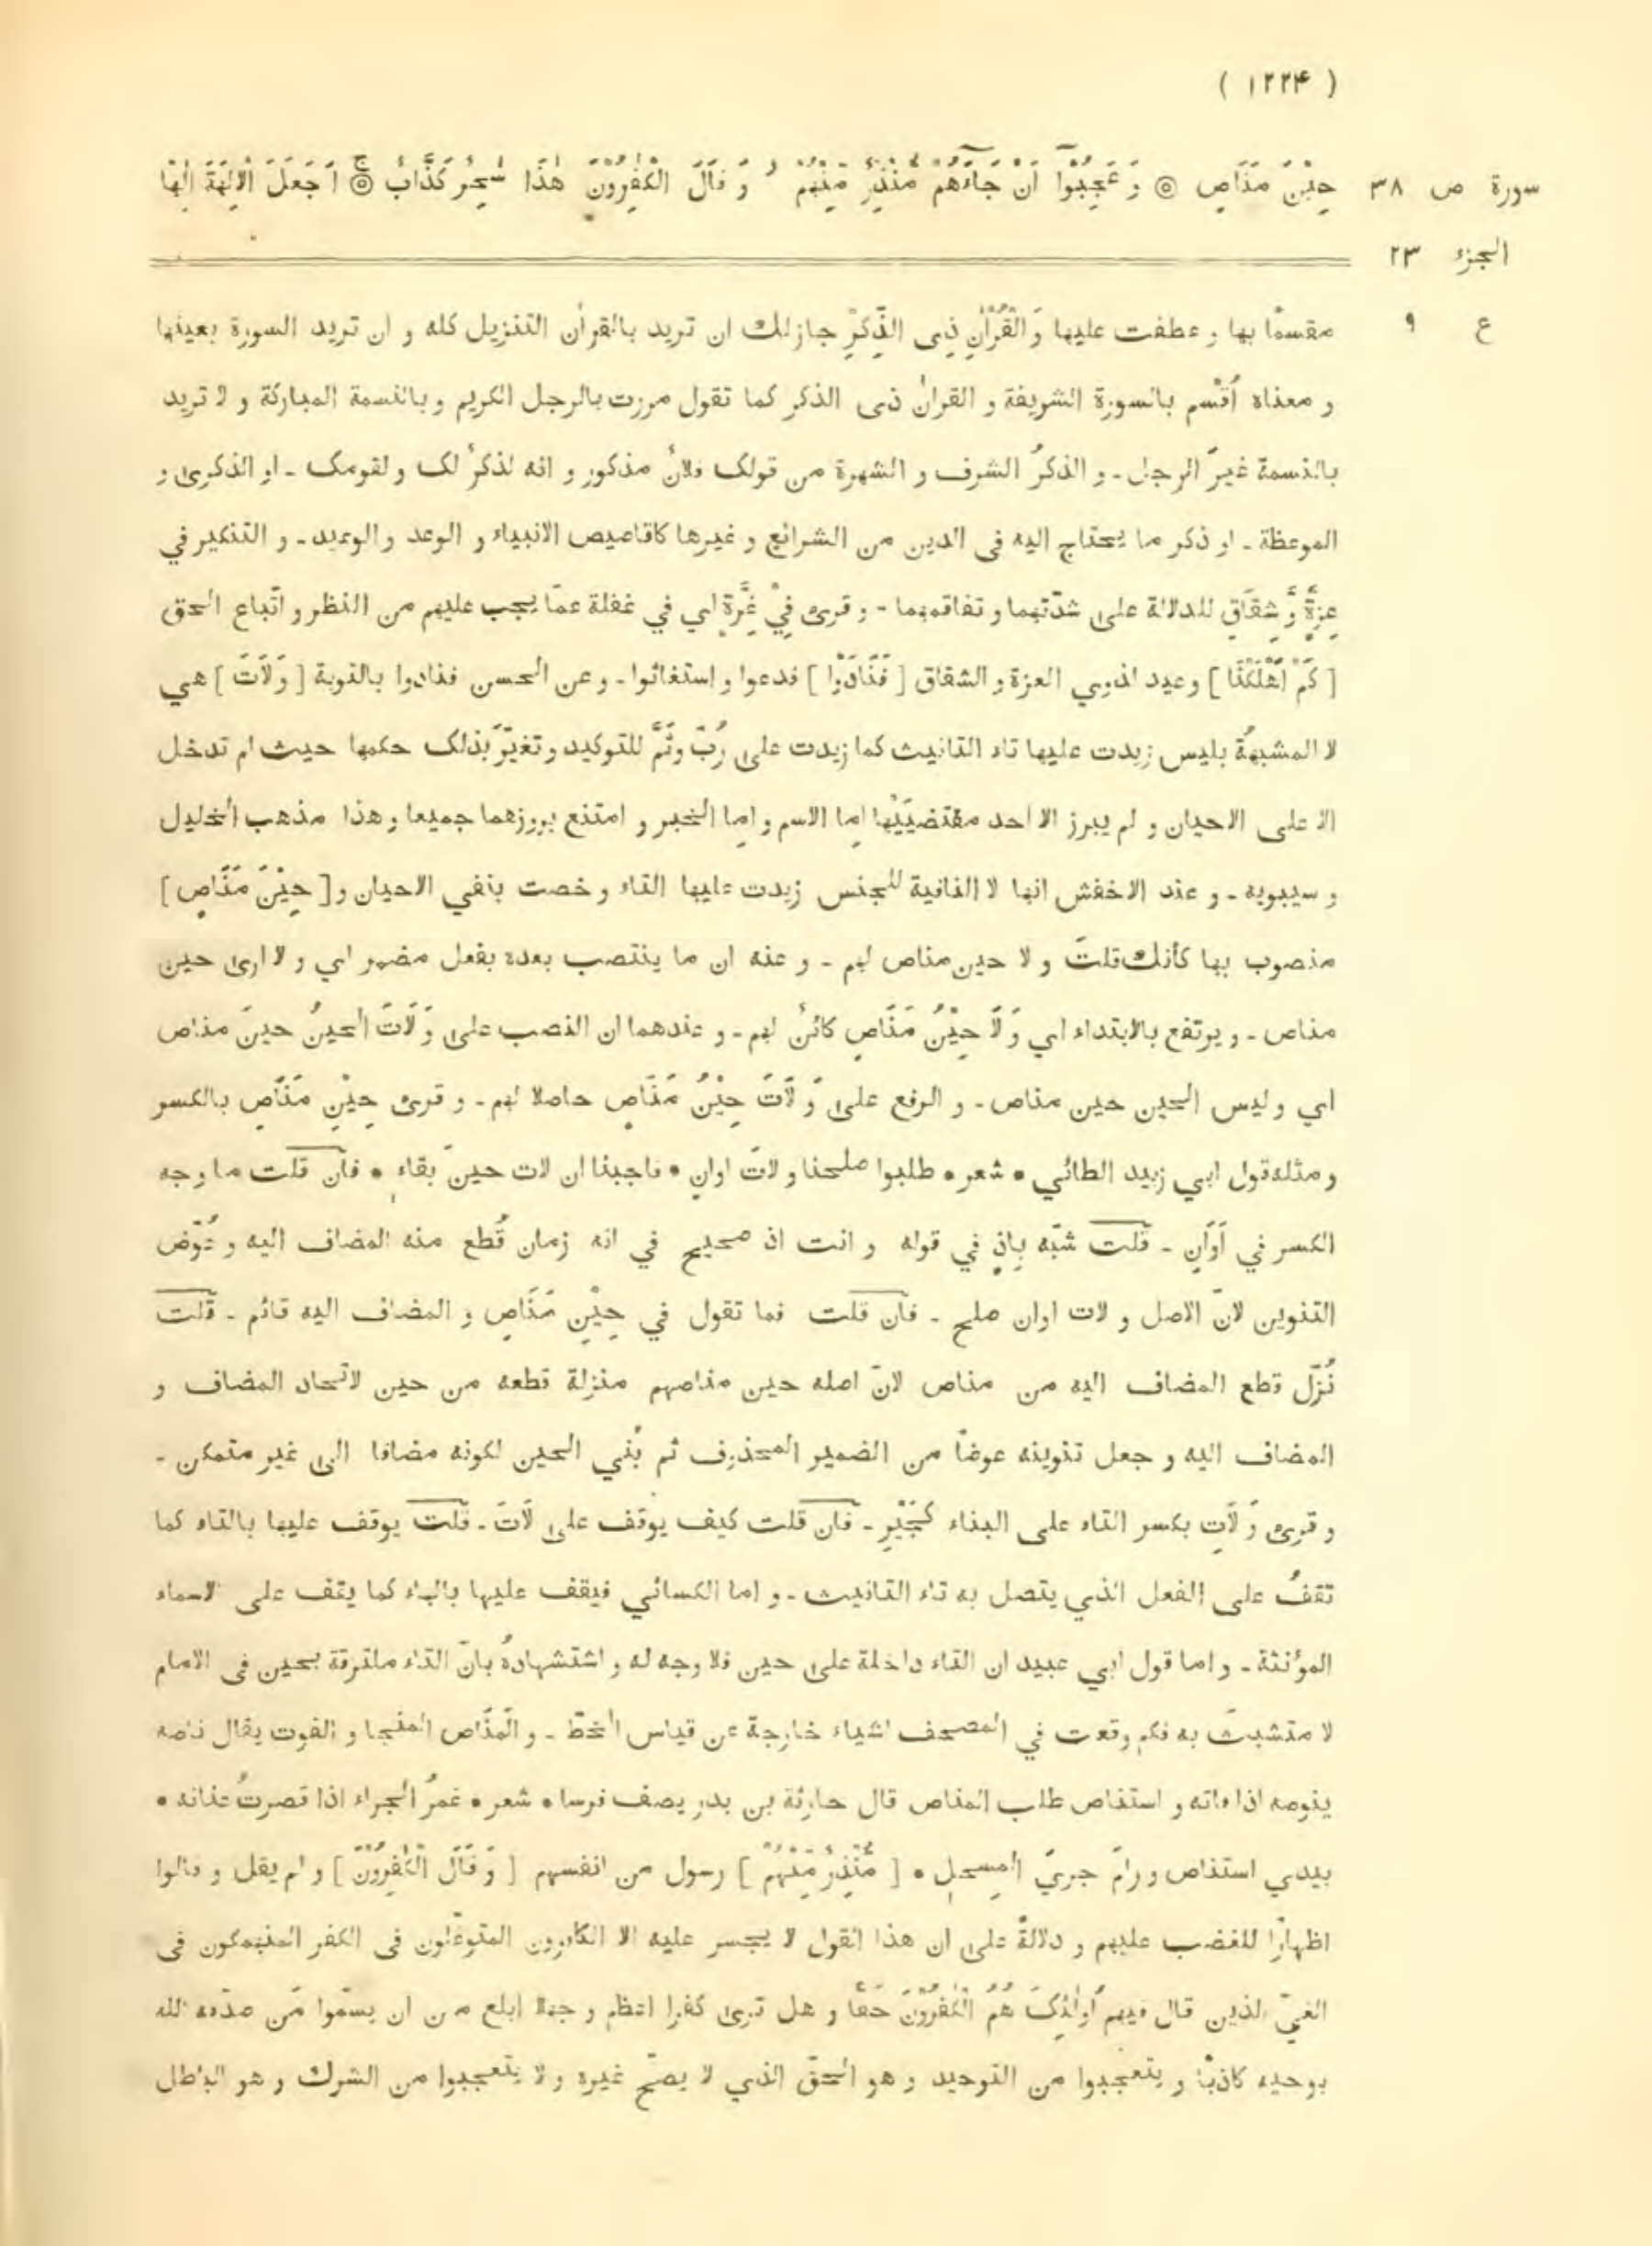 ( ١٢٢۴ )
سورة ص ٣٨ حِيْنَ مَنَاصٍ ۞ وَ عَجِبُوْٓا اَنْ جَآءَهُمْ مُّنْذِرٌ مِّنْهُمْ ز وَ قَالَ الْكٰفِرُوْنَ هٰذَا سٰحِرٌ كَذَّابٌ ۞ ج اَ جَعَلَ الْاٰلِهَةَ اِلٰهًا
الجزء ٢٣
ع ٩
مقسمًا بها و عطفت عليها وَ الْقُرْاٰنِ ذِى الذِّكْرِ جاز لك ان تريد بالقراٰن التنزيل كله و ان تريد السورة بعينها
و معناه اُقْسم بالسورة الشريفة و القراٰن ذى الذكر كما تقول مررت بالرجل الكريم و بالنسمة المباركة و لا تريد
بالنسمة غيرَ الرجل ـ و الذكرُ الشرف و الشهرة من قولك فلانٌ مذكور و انه لذكرٌ لك و لقومك ـ او الذكرى و
الموعظة ـ او ذكر ما يحتاج اليه فى الدين من الشرائع و غيرها كاقاصيص الانبياء و الوعد و الوعيد ـ و التنكير في
عِزةٍ وَّ شِقَاقٍ للدلالة على شدّتهما و تفاقمهما ـ و قرئ فِيْ غِرَّةٍ اي في غفلة عمّا يجب عليهم من النظر و اتّباع الحق
[ كَمْ اَهْلَكْنَا ] وعيد لذوي العزة و الشقاق [ فَنَادَوْا ] فدعوا و استغاثوا ـ و عن الحسن فنادوا بالتوبة [ وَ لَاتَ ] هي
لا المشبهةُ بليس زيدت عليها تاء التانيث كما زيدت على رُبّ و ثُمَّ للتوكيد و تغيّرَ بذلك حكمها حيث لم تدخل
الا على الاحيان و لم يبرز الا احد مقتضيَيْها اِما الاسم و اِما الخبر و امتنع بروزهما جميعا و هذا مذهب الخليل
و سيبويه ـ و عند الاخفش انها لا النافية للجنس زيدت عليها التاء و خصت بنفي الاحيان و [ حِيْنَ مَنَاصٍ ]
منصوب بها كأنك قلتَ و لا حين مناص لهم ـ و عنه ان ما ينتصب بعده بفعل مضمر اي و لا ارى حين
مناص ـ و يرتفع بالابتداء اي وَ لَا حِيْنُ مَنَاصٍ كائنٌ لهم ـ و عندهما ان النصب على وَ لَاتَ الحينُ حينَ مناص
اي و ليس الحين حين مناص ـ و الرفع على وَ لَاتَ حِيْنُ مَنَاصٍ حاصلا لهم ـ و قرئ حِيْنِ مَنَاصٍ بالكسر
و مثله قول ابي زبيد الطائي • شعر • طلبوا صلحنا و لاتَ اوانٍ • فاجبنا ان لات حينَ بقاءٍ • فان قلت ما وجه
الكسر في اَوَانٍ ـ قلت شبّه بِاِذٍ في قوله و انت اذ صحيح في انه زمان قُطع منه المضاف اليه و عُوّض
التنوين لانّ الاصل و لات اوان صلح ـ فان قلت فما تقول في حِيْنِ مَنَاصٍ و المضاف اليه قائم ـ قلت
نُزّل قطع المضاف اليه من مناص لانّ اصله حين مناصهم منزلة قطعه من حين لاتّحاد المضاف و
المضاف اليه و جعل تنوينه عوضًا من الضمير المحذوف ثم بُني الحين لكونه مضافا الى غير متمكن ـ
و قرئ وَ لَاتِ بكسر التاء على البناء كَجَيْرِ ـ فان قلت كيف يوقف على لَاتَ ـ قلت يوقف عليها بالتاء كما
تقفُ على الفعل الذي يتصل به تاء التانيث ـ و اما الكسائي فيقف عليها بالهاء كما يقف على الاسماء
المؤنثة ـ و اما قول ابي عبيد ان التاء داخلة على حين فلا وجه له و استشهادهُ بانّ التاء ملتزقة بحين فى الامام
لا متشبثَ به فكم وقعت في المصحف اشياء خارجة عن قياس الخطّ ـ و المَنَاص المنجا و الفوت يقال ناصه
ينوصه اذا فاته و استناص طلب المناص قال حارثة بن بدر يصف فرسا • شعر • غمرُ الجراء اذا قصرتُ عنانه •
بيدي استناص و رامَ جريَ المِسحلِ • [ مُّنْذِرٌ مِّنْهُمْ ] رسول من انفسهم [ وَ قَالَ الْكٰفِرُوْنَ ] و لم يقل و قالوا
اظهارًا للغضب عليهم و دلالةً على ان هذا القول لا يجسر عليه الا الكافرون المتوغلون فى الكفر المنهمكون فى
الغيّ الذين قال فيهم اُولٰئِكَ هُمُ الْكٰفِرُوْنَ حَقًّا و هل ترى كفرا اعظم و جهلا ابلغ من ان يسمّوا مَن صدّقه الله
بوحيه كاذبًا و يتعجبوا من التوحيد و هو الحقّ الذي لا يصحّ غيره و لا يتعجبوا من الشرك و هو الباطل